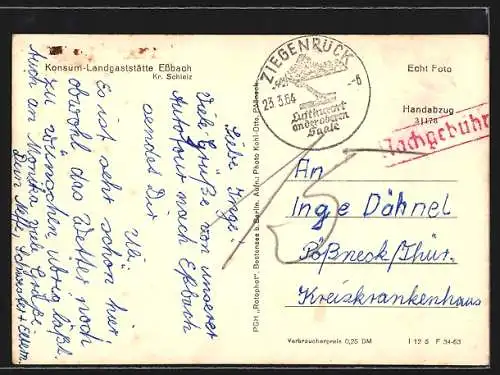 Konsum-Landgaststätte Eßbach
Kr. Schleiz
ZIEGENRÜCK
23.3.64
-6
Luftkurort
an der oberen
Saale
Echt Foto
Handabzug
Nachgebühr
Liebe Inge!
Viele Grüße von unserer
Autotour nach Eßbach
sendet Dir
Es ist sehr schön hier
obwohl das Wetter noch
zu wünschen übrig läßt.
Auch an Monika viele Grüße.
Dein Neffe, Schwester Eltern.
PGH „Rotophot", Bestensee b. Berlin. Aufn.: Photo Kohl-Otto, Pößneck
An
Inge Dähnel
Pößneck/Thür.
Kreiskrankenhaus
Verbraucherpreis 0,25 DM
I 12 5 F 34-63